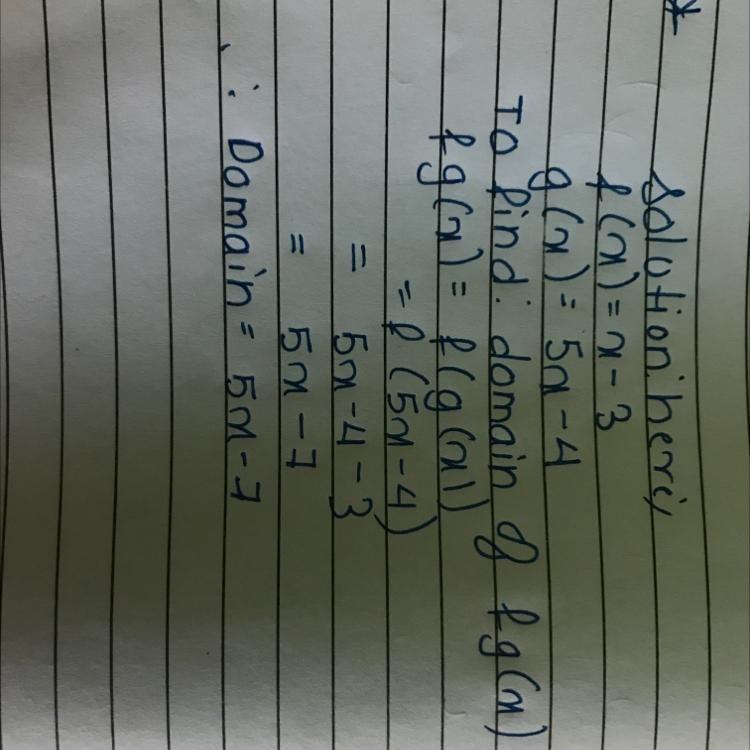 *
Solution here,
f(x) = x - 3
g(x) = 5x - 4
To find: domain of fg(x)
fg(x) = f(g(x))
= f(5x - 4)
= 5x - 4 - 3
= 5x - 7
∴ Domain = 5x - 7